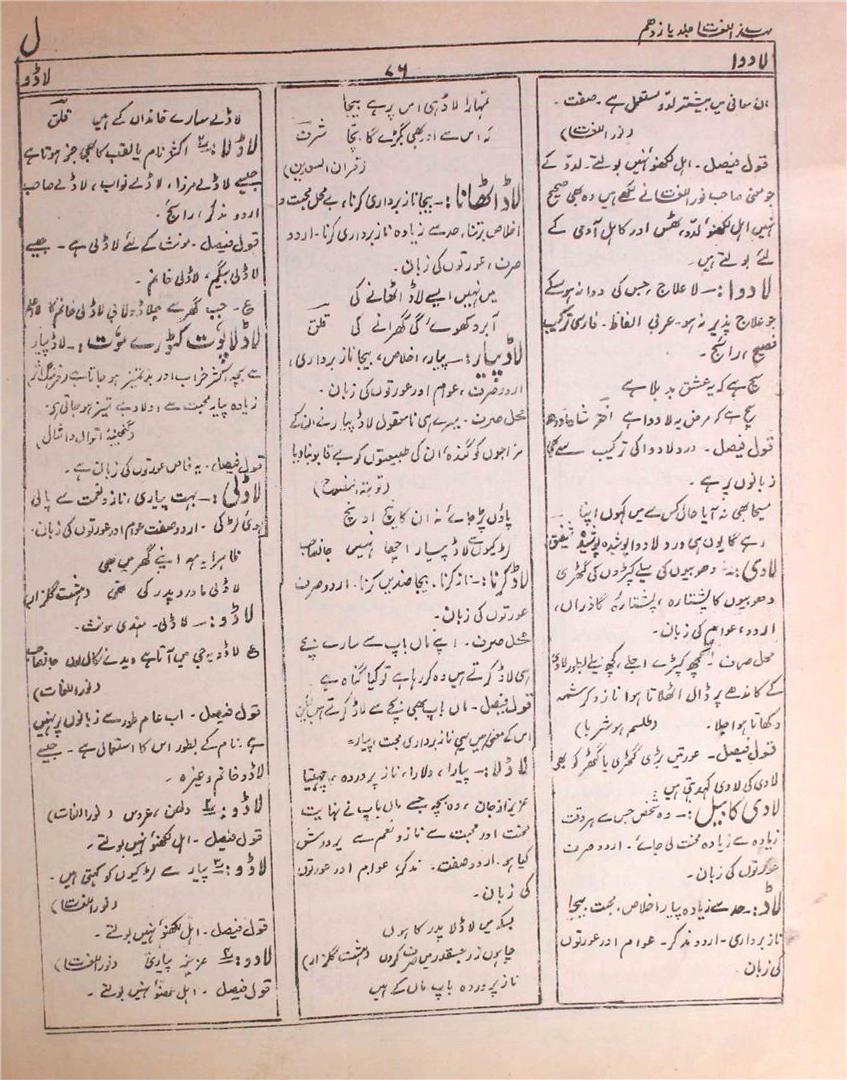 مہذب اللغت جلد یازدہم
ل
لادوا
۷۶
لاڈو
ان معانی میں بیشتر لدّو مستعمل ہے۔ صفت۔
(نور اللغت)
قول فیصل۔ اہل لکھنؤ نہیں بولتے۔ لدّو کے
جو معنی صاحب نور اللغت نے لکھے ہیں وہ بھی صحیح
نہیں اہل لکھنؤ لدّو، ٹھس اور کاہل آدمی کے
لئے بولتے ہیں۔
لادوا:۔ لا علاج، جس کی دوا نہ ہو سکے
جو علاج پذیر نہ ہو۔ عربی الفاظ۔ فارسی ترکیب
فصیح، رائج۔
سچ ہے کہ یہ عشق بد بلا ہے
سچ ہے کہ مرض یہ لادوا ہے اختر شاہ اودھ
قول فیصل۔ درد لادوا کی ترکیب سے بھی
زبانوں پر ہے۔
مسیحا بھی نہ آیا حال کس سے میں کہوں اپنا
رہے گا یوں ہی درد لادوا پوشیدہ پوشیدہ
لادی:۔ دھوبیوں کی میلے کپڑوں کی گٹھری
دھوبیوں کا پشتارہ، پشتارۂ گاذراں،
اردو، عوام کی زبان۔
محل صرف۔ کچھ کپڑے اجلے، کچھ میلے
کے کاندھے پر ڈال اٹھلاتا ہوا ناز و کرشمہ
دکھاتا ہوا چلا۔ (طلسم ہوشربا)
قول فیصل۔ عورتیں بڑی گٹھری یا گٹھر کو بھی
لادی کی لادی کہہ دیتی ہیں
لادی کا بیل:۔ وہ شخص جس سے ہر وقت
زیادہ سے زیادہ محنت لی جائے۔ اردو صرف
عورتوں کی زبان۔
لاڈ:۔ حد سے زیادہ پیار، اخلاص، محبت، بیجا
ناز برداری۔ اردو مذکر۔ عوام اور عورتوں
کی زبان۔
تمہارا لاڈ ہی اس پر ہے بیجا
نہ اس سے اور بھی بگڑے گا بچا شرف
(قران السعدین)
لاڈ اٹھانا:۔ بیجا ناز برداری کرنا، بے محل محبت و
اخلاص برتنا، حد سے زیادہ ناز برداری کرنا۔ اردو
صرف، عورتوں کی زبان۔
میں نہیں ایسے لاڈ اٹھانے کی
آبرو کھوے گی گھرانے کی قلق
لاڈ پیار:۔ پیار، اخلاص، بیجا ناز برداری،
اردو صرف، عوام اور عورتوں کی زبان۔
محل صرف۔ میرے ہی نا معقول لاڈ پیار نے ان کے
مزاجوں کو گندہ، ان کی طبیعتوں کو بے قابو بنا دیا
(توبۃ النصوح)
پاؤں پڑ جائے نہ ان کا نیچ اونچ
لڑکیوں سے لاڈ پیار اچھا نہیں جانصاحب
لاڈ کرنا:۔ ناز کرنا۔ بیجا ضدیں کرنا۔ اردو صرف
عورتوں کی زبان۔
محل صرف۔ اپنے ماں باپ سے سارے بچے
ہی لاڈ کرتے ہیں وہ کر رہا ہے تو کیا گناہ ہے
قول فیصل۔ ماں باپ بھی بچے سے لاڈ کرتے ہیں
اس کے معنی ہیں بیجا ناز برداری محبت، پیار،
لاڈلا:۔ پیارا، دلارا، ناز پروردہ، چہیتا
عزیز از جان، وہ بچہ جسے ماں باپ نے نہایت
محنت اور محبت سے ناز و نعم سے پرورش
کیا ہو۔ اردو صفت۔ مذکر، عوام اور عورتوں
کی زبان۔
بسکہ میں لاڈلا پدر کا ہوں
چاہوں زر جسقدر میں صرف کروں (ہشت گلزار)
ناز پروردہ باپ ماں کے ہیں
لاڈلے سارے خانداں کے ہیں قلق
لاڈلا:۔ ۲ اکثر نام یا لقب کا بھی جز ہوتا ہے
جیسے لاڈلے مرزا، لاڈلے نواب، لاڈلے صاحب
اردو مذکر، رائج۔
قول فیصل۔ مونث کے لئے لاڈلی ہے۔ جیسے
لاڈلی بیگم، لاڈلی خانم۔
ع۔ جب گھر سے لاڈلی خانم کا
لاڈلا پوت کٹورے موت:۔ لاڈ پیار
سے بچہ اکثر خراب اور بدتمیز ہو جاتا ہے
زیادہ پیار محبت سے اولاد بے تمیز ہو جاتی ہے
(گنجینۂ اقوال و امثال)
قول فیصل۔ یہ خاص عورتوں کی زبان ہے۔
لاڈلی:۔ بہت پیاری، ناز و نعمت سے پالی
ہوئی لڑکی۔ اردو صفت عوام اور عورتوں کی زبان۔
ظاہرا یہ اپنے گھر میں بھی
لاڈلی مادر و پدر کی تھی (ہشت گلزار)
لاڈو:۔ لاڈلی۔ ہندی مونث۔
ع لاڈو یہ جی میں آتا ہے دیدے نکال لوں جانصاحب
(نور اللغات)
قول فیصل۔ اب عام طور سے زبانوں پر نہیں
ہے۔ نام کے بطور اس کا استعمال ہے۔ جیسے
لاڈو خانم وغیرہ۔
لاڈو:۔ ۲ دلھن، عروس (نور اللغات)
قول فیصل۔ اہل لکھنؤ نہیں بولتے۔
لاڈو:۔ ۳ پیار سے لڑکیوں کو کہتی ہیں۔
(نور اللغت)
قول فیصل۔ اہل لکھنؤ نہیں بولتے۔
لاڈو:۔ ۴ عزیز پیاری (نور اللغت)
قول فیصل۔ اہل لکھنؤ نہیں بولتے۔